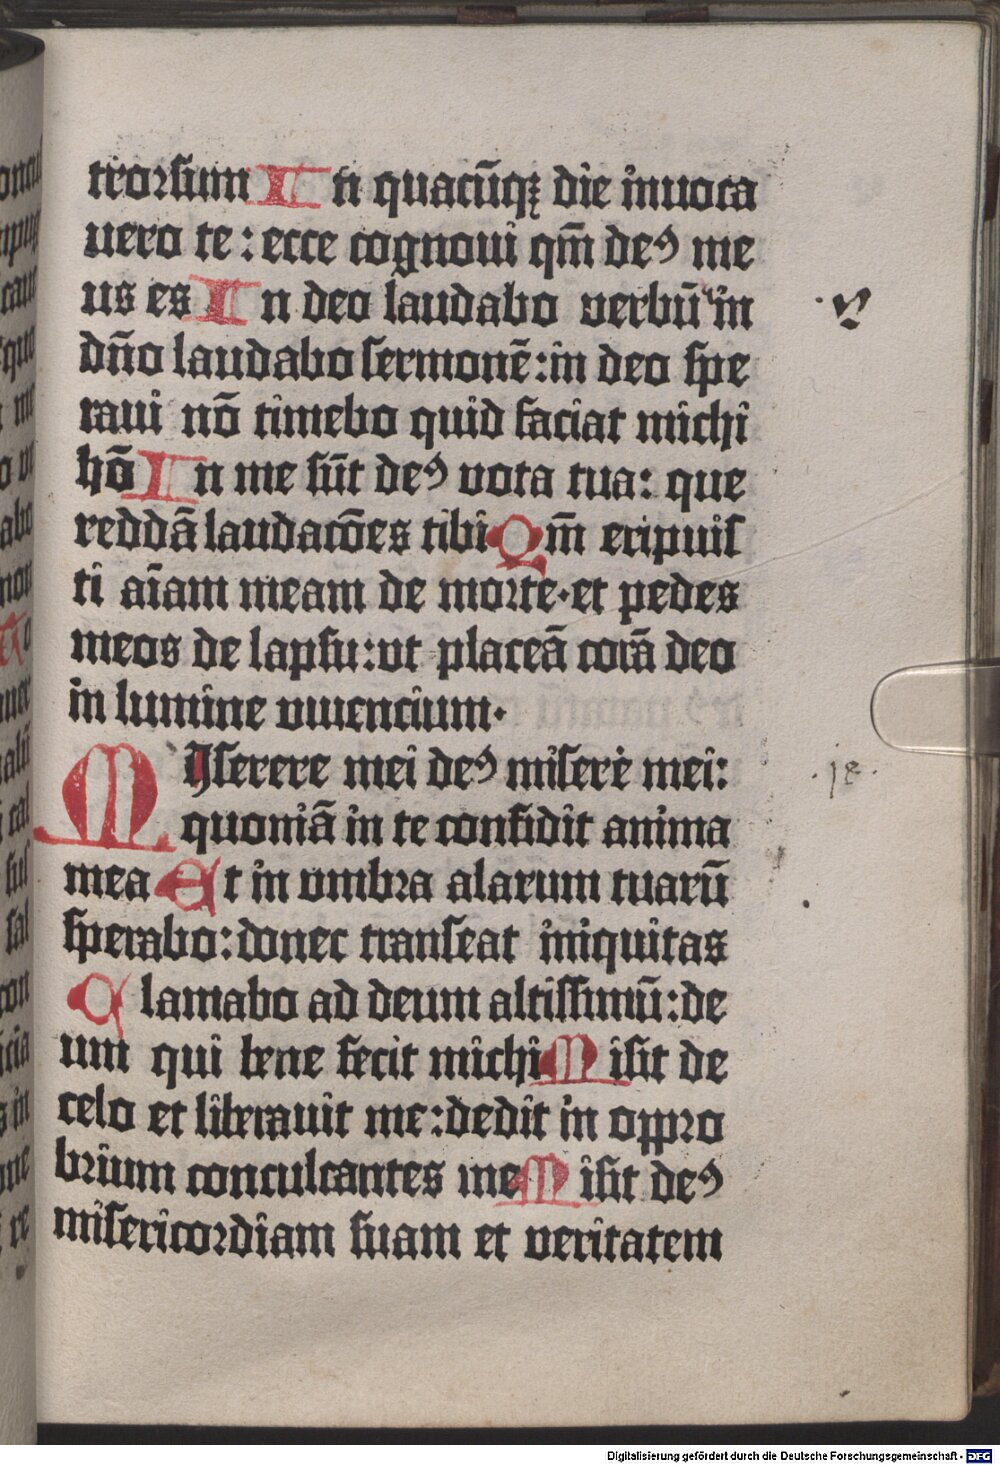 trorsum In quacūqꝫ die inuoca
uero te : ecce cognoui qm̄ deꝰ me
us es In deo laudabo verbū in
dn̄o laudabo sermonē : in deo spe
raui nō timebo quid faciat michi
hō In me sūt deꝰ vota tua : que
reddā laudacōes tibi Qm̄ eripuis
ti aīam meam de morte · et pedes
meos de lapsu : ut placeā corā deo
in lumine viuencium ·
MIserere mei deꝰ miserere mei :
quoniā in te confidit anima
mea Et in vmbra alarum tuarū
sperabo : donec transeat iniquitas
Clamabo ad deum altissimū : de
um qui bene fecit michi Misit de
celo et liberauit me : dedit in oppro
brium conculcantes me Misit deꝰ
misericordiam suam et veritatem
Digitalisierung gefördert durch die Deutsche Forschungsgemeinschaft - DFG